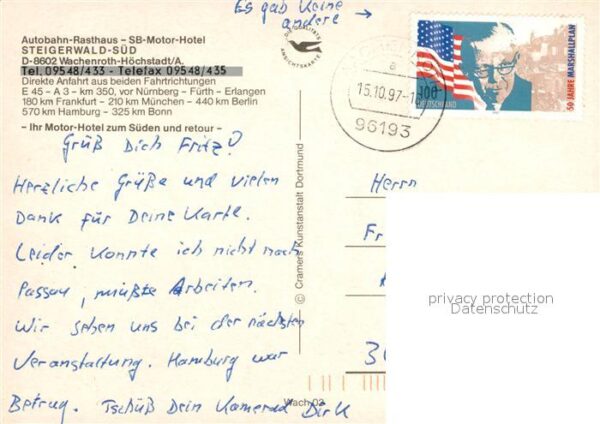 Es gab keine
andere →
Autobahn-Rasthaus – SB-Motor-Hotel
STEIGERWALD-SÜD
D-8602 Wachenroth-Höchstadt/A.
Tel. 09548/433 - Telefax 09548/435
Direkte Anfahrt aus beiden Fahrtrichtungen
E 45 - A 3 – km 350, vor Nürnberg – Fürth – Erlangen
180 km Frankfurt – 210 km München – 440 km Berlin
570 km Hamburg – 325 km Bonn
– Ihr Motor-Hotel zum Süden und retour –
Grüß Dich Fritz!
Herzliche Grüße und vielen
Dank für Deine Karte.
Leider konnte ich nicht nach
Passau, mußte Arbeiten.
Wir sehen uns bei der nächsten
Veranstaltung. Hamburg war
Betrug. Tschüß Dein Kamerad Dirk
ANSICHTSKARTE
© Cramers Kunstanstalt Dortmund
Wach 02
a
15.10.97-1
96193
100
DEUTSCHLAND
50 JAHRE MARSHALLPLAN
Herrn
Fr
3
privacy protection
Datenschutz